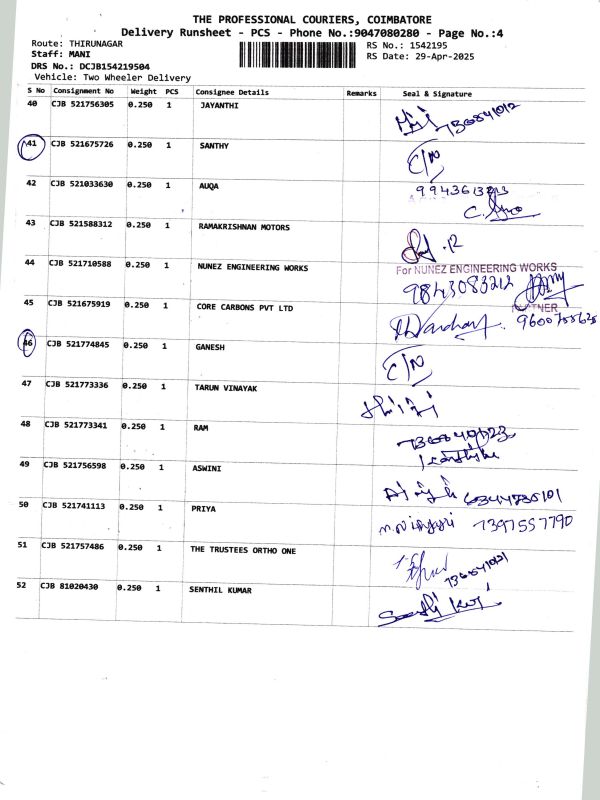 THE PROFESSIONAL COURIERS, COIMBATORE
Delivery Runsheet - PCS - Phone No.:9047080280 - Page No.:4
Route: THIRUNAGAR RS No.: 1542195
Staff: MANI RS Date: 29-Apr-2025
DRS No.: DCJB154219504
Vehicle: Two Wheeler Delivery
S No Consignment No Weight PCS Consignee Details Remarks Seal & Signature
40 CJB 521756305 0.250 1 JAYANTHI
41 CJB 521675726 0.250 1 SANTHY C/N
42 CJB 521033630 0.250 1 AUQA
43 CJB 521588312 0.250 1 RAMAKRISHNAN MOTORS
44 CJB 521710588 0.250 1 NUNEZ ENGINEERING WORKS For NUNEZ ENGINEERING WORKS
9843083212
45 CJB 521675919 0.250 1 CORE CARBONS PVT LTD
46 CJB 521774845 0.250 1 GANESH C/N
47 CJB 521773336 0.250 1 TARUN VINAYAK
48 CJB 521773341 0.250 1 RAM
49 CJB 521756598 0.250 1 ASWINI
50 CJB 521741113 0.250 1 PRIYA 7397557790
51 CJB 521757486 0.250 1 THE TRUSTEES ORTHO ONE
52 CJB 81020430 0.250 1 SENTHIL KUMAR